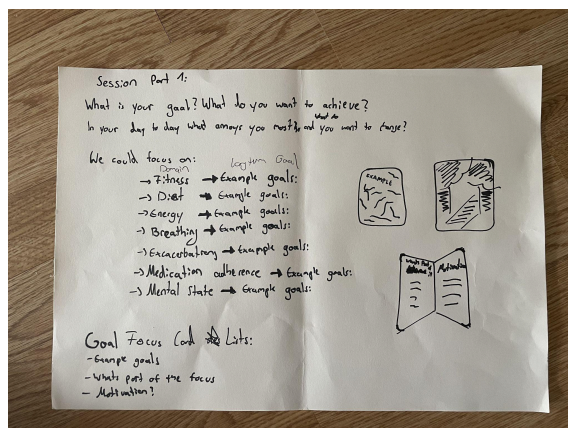 Session Part 1:
What is your goal? What do you want to achieve?
In your day to day what annoys you most and what do you want to change?
We could focus on:
Domain
Long term Goal
→ Fitness → Example goals:
→ Diet → Example goals:
→ Energy → Example goals:
→ Breathing → Example goals:
→ Excacerbations → Example goals:
→ Medication adherence → Example goals:
→ Mental State → Example goals:
EXAMPLE
Whats Part of
Motivation
Goal Focus Card Lists:
- Example goals
- Whats part of the focus
- Motivation?